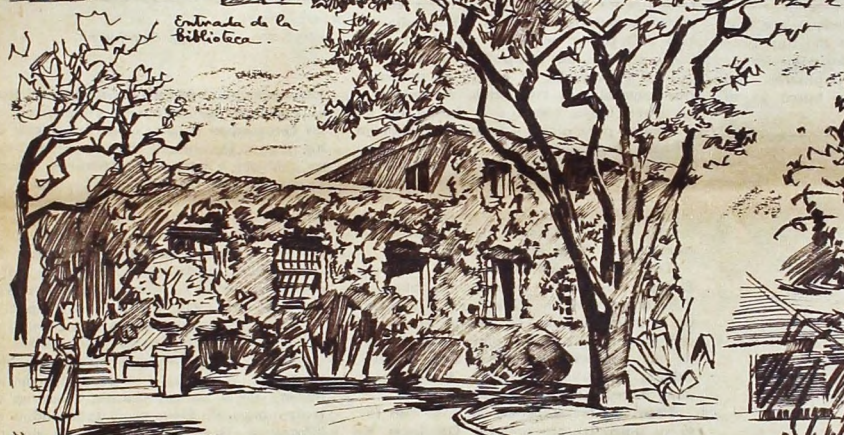 Entrada de la
biblioteca.